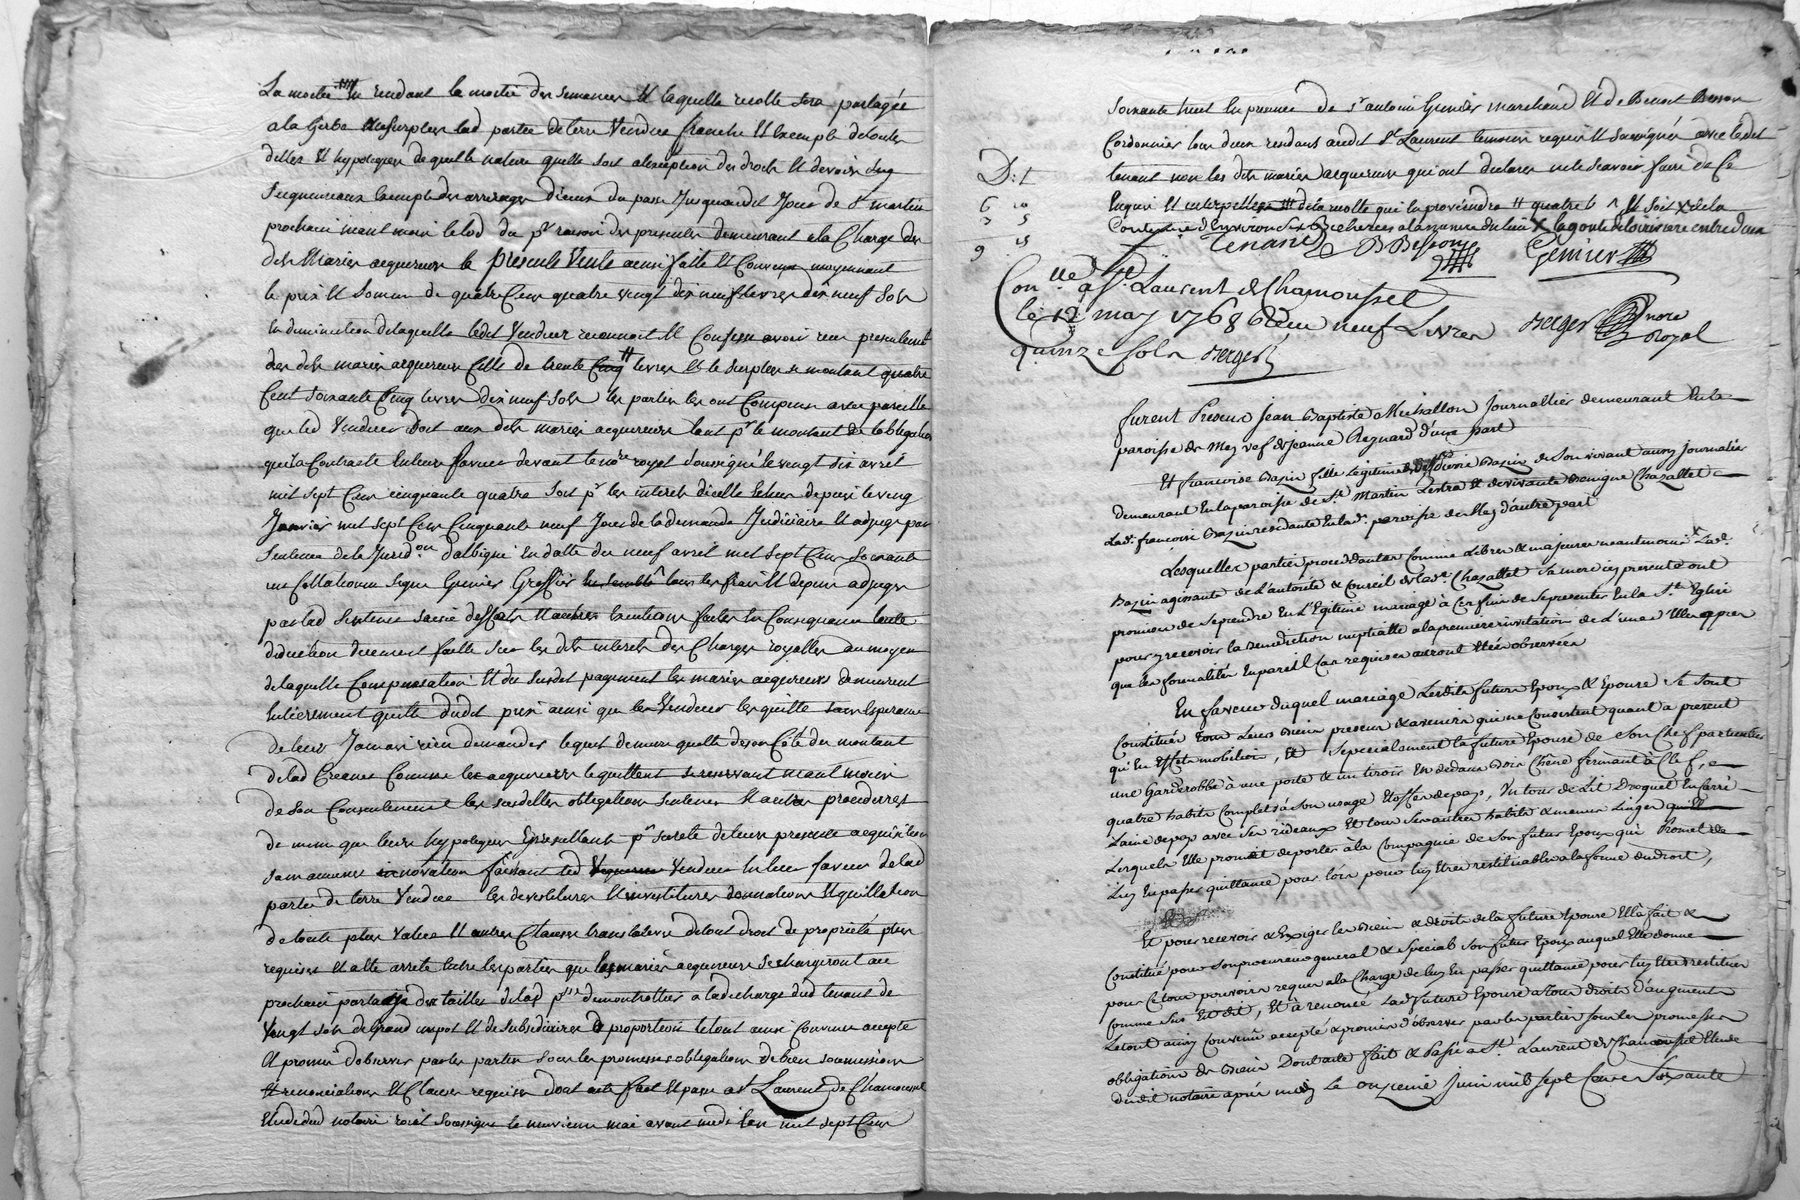 La moitié en rendant la moitié des semances et laquelle recolte sera partagée
a la Gerbe au surplus lad partie de terre vendue franche et exempte de toutes
dettes et hypoteques de quelle nature quelle soit a lexception des droits et devoirs
seigneuriaux exempte des arrerages d'iceux du passé jusquaudit jour de st martin
prochain mant moin le lod du pnt raison des presentes demeurant a la Charge des
dits Mariés acquereurs la presente Vente ainsi faitte et Convenue moyennant
le prix et somme de quatre Cens quatre vingt dix neuf livres dix neuf sols
en diminution de laquelle ledit Vendeur reconnoit et Confesse avoir reçu presentement
des dits mariés acquereurs Celle de trente livres et le surplus se montant quatre
Cent soixante Cinq livres dix neuf sols les parties les ont Compensé avec pareille
que led Vendeur doit aux dits mariés acquereurs tant pr le montant de lobligation
qu'il a Contracté en leur faveur devant le nore royal soussigné le vingt six avril
mil sept Cens cinquante quatre soit pr les interets d'icelle echus depuis le vingt
Janvier mil sept Cens Cinquante neuf Jour de la demande Judiciaire et adjugé par
sentence de la Juridon d'albigni en datte du neuf avril mil sept Cens soixante
une Collationnée signé Genier Greffier tous les frais et depens adjugés
par lad sentence saisie et autres executions faites en Consequence
deduction duement faitte sur les dits interets des Charges royalles au moyen
de laquelle Compensation et du susdit payement les mariés acquereurs demeurent
entièrement quitte dudit prix ainsi que le Vendeur les quitte sans esperance
de leur Jamais rien demander lequel demeure quitte de son Côté du montant
de lad Creance Comme les acquereurs le quittent se reservant mant moin
de son Consentement les susdittes obligations sentence et autres procedures
de même que leurs hypoteques en resultants pr sureté de leur presente acquisition
sans aucune innovation faisant led Vendeur en leur faveur de lad
partie de terre Vendue les devestitures et investitures donnations et quittation
de toute plus value et autres Clauses translatives de tout droit de propriété plus
requises et a été arreté entre les parties que les mariés acquereurs se chargeront au
prochain partage des tailles de lad psse de montrottier a la decharge dud tenant de
Vingt sols de Grand impot et de subsidiaires a proportion le tout ainsi Convenu accepté
et promis d'observer par les parties sous les promesses obligations de biens soumissions
et renonciations et Clauses requises dont acte fait et passé a st Laurent de Chamousset
Etude dud notaire roial soussigné le neuvieme mai avant midi lan mil sept Cens
soixante huit en presence de sr antoine Genier marchand et de Benoit Besson
Cordonnier tous deux residans audit st Laurent temoins requis et soussignés avec ledit
tenant non les dits mariés acquereurs qui ont declaré ne le sçavoir faire de Ce
Enquis et interpellés
Contenue d'environ six Bicherées
D: 1
6 10
3 5
9 15
Tenant B Besson Genier
Conllé a St. Laurent de Chamousset
le 12 may 1768 Reçu neuf Livres
quinze sols Berger
Berger nore
Royal
furent Presens Jean Baptiste Michallon Journallier demeurant en la
paroisse de Meys vef de Jeanne Reynard d'une part
Et françoise Bazin fille legitime de deffunt Pierre Bazin de son vivant aussi Journalier
demeurant en la paroisse de St. Martin Lestra et de vivante Benigne Chazallet
Lad. françoise Bazin residante en lad. paroisse de Meys d'autre part
Lesquelles parties procedantes comme Libres & majeures neantmoins Lad.
Bazin agissante de L'autorité & conseil de lad. Chazallet sa mere icy presente ont
promis de se prendre en Legitime mariage à Ces fins de se presenter en la Ste. Eglise
pour y recevoir la Benediction nuptialle a la premiere invitation de L'un d'Eux apres
que les formalités en pareil Cas requises auront étées observées
En faveur duquel mariage Lesdits futurs Epoux & Epouse se sont
Constitués tous Leurs Biens presens & avenirs qui ne consistent quant a present
qu'en Effets mobiliers, Et specialement la future Epouse de son Chef particulier
une Garderobbe à une porte & un tiroir en dedans Bois Chêne fermant à Clef,
quatre habits Complets à son usage Etoffe de pays, Un tour de Lit Droguet en Carré
Laine de pays avec ses rideaux Et tous ses autres habits & menus Linges
Lesquels Elle promet de porter à la Compagnie de son futur Epoux qui Promet de
Luy en passer quittance pour Lors pour luy être restituables a la forme du droit,
Et pour recevoir & Exiger les Biens & droits de la future Epouse Elle a fait &
Constitué pour son procureur general & special son futur Epoux auquel Elle donne
pour Ce tous pouvoirs requis a la Charge de luy en passer quittance pour luy être restitué
comme sus Est dit, Et à renoncé Lad future Epouse a tous droits d'augment
Le tout ainsy convenu accepté & promis d'observer par les parties sous les promesses
obligations de Biens Dont acte fait & Passé a St. Laurent de Chamousset Etude
dudit notaire après midy Le onzieme Juin mil sept Cens soixante